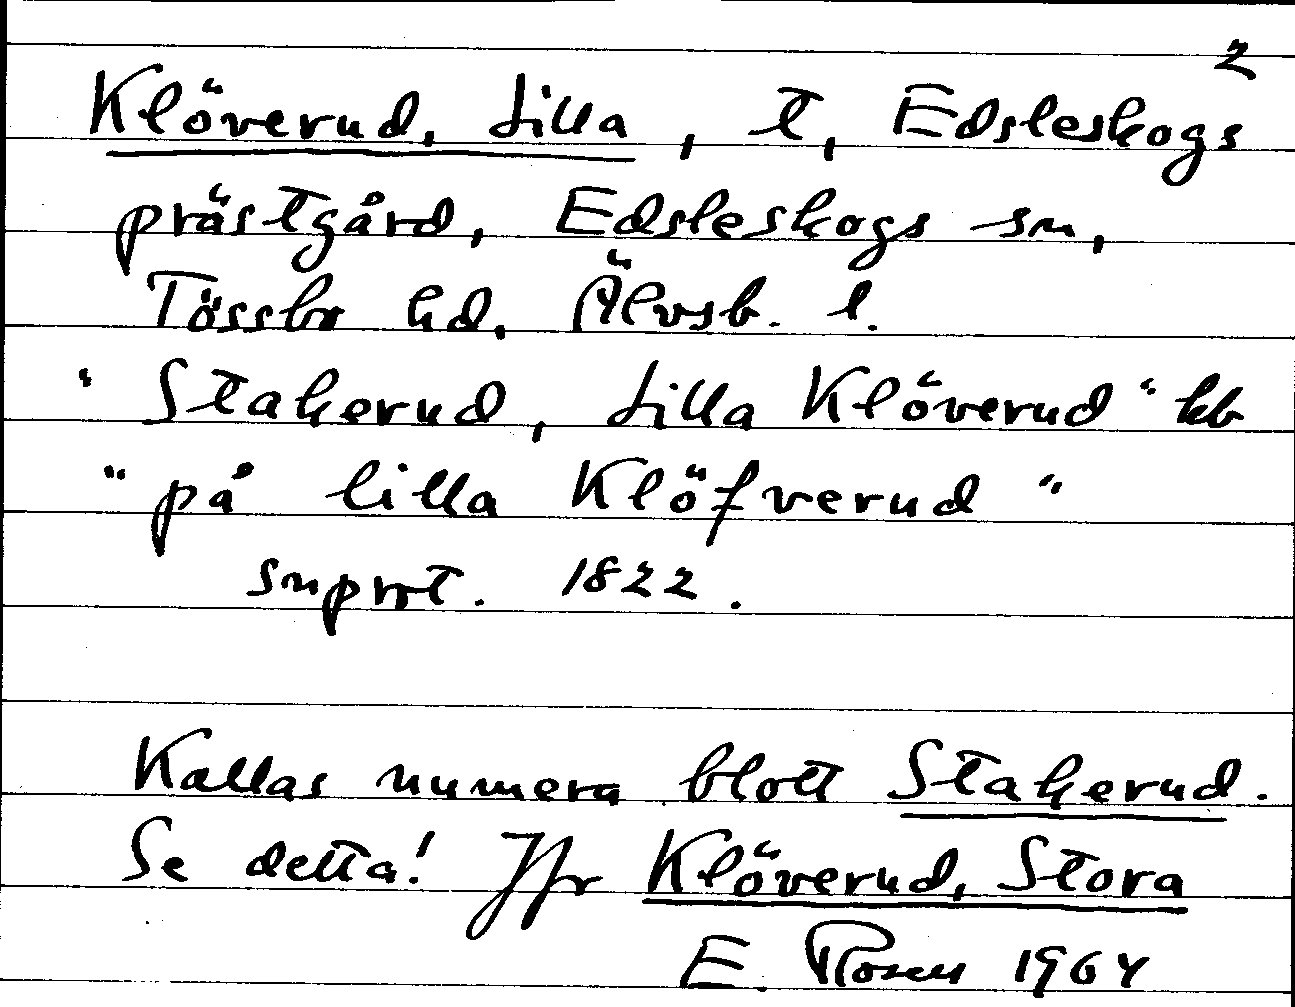 2
Klöverud, Lilla, t, Edsleskogs
prästgård, Edsleskogs sn,
Tössbo hd, Älvsb. l.
"Stakerud, Lilla Klöverud" kb
"på lilla Klöfverud"
snprot. 1822.
Kallas numera blott Stakerud.
Se detta! Jfr Klöverud, Stora
E. Rosen 1964